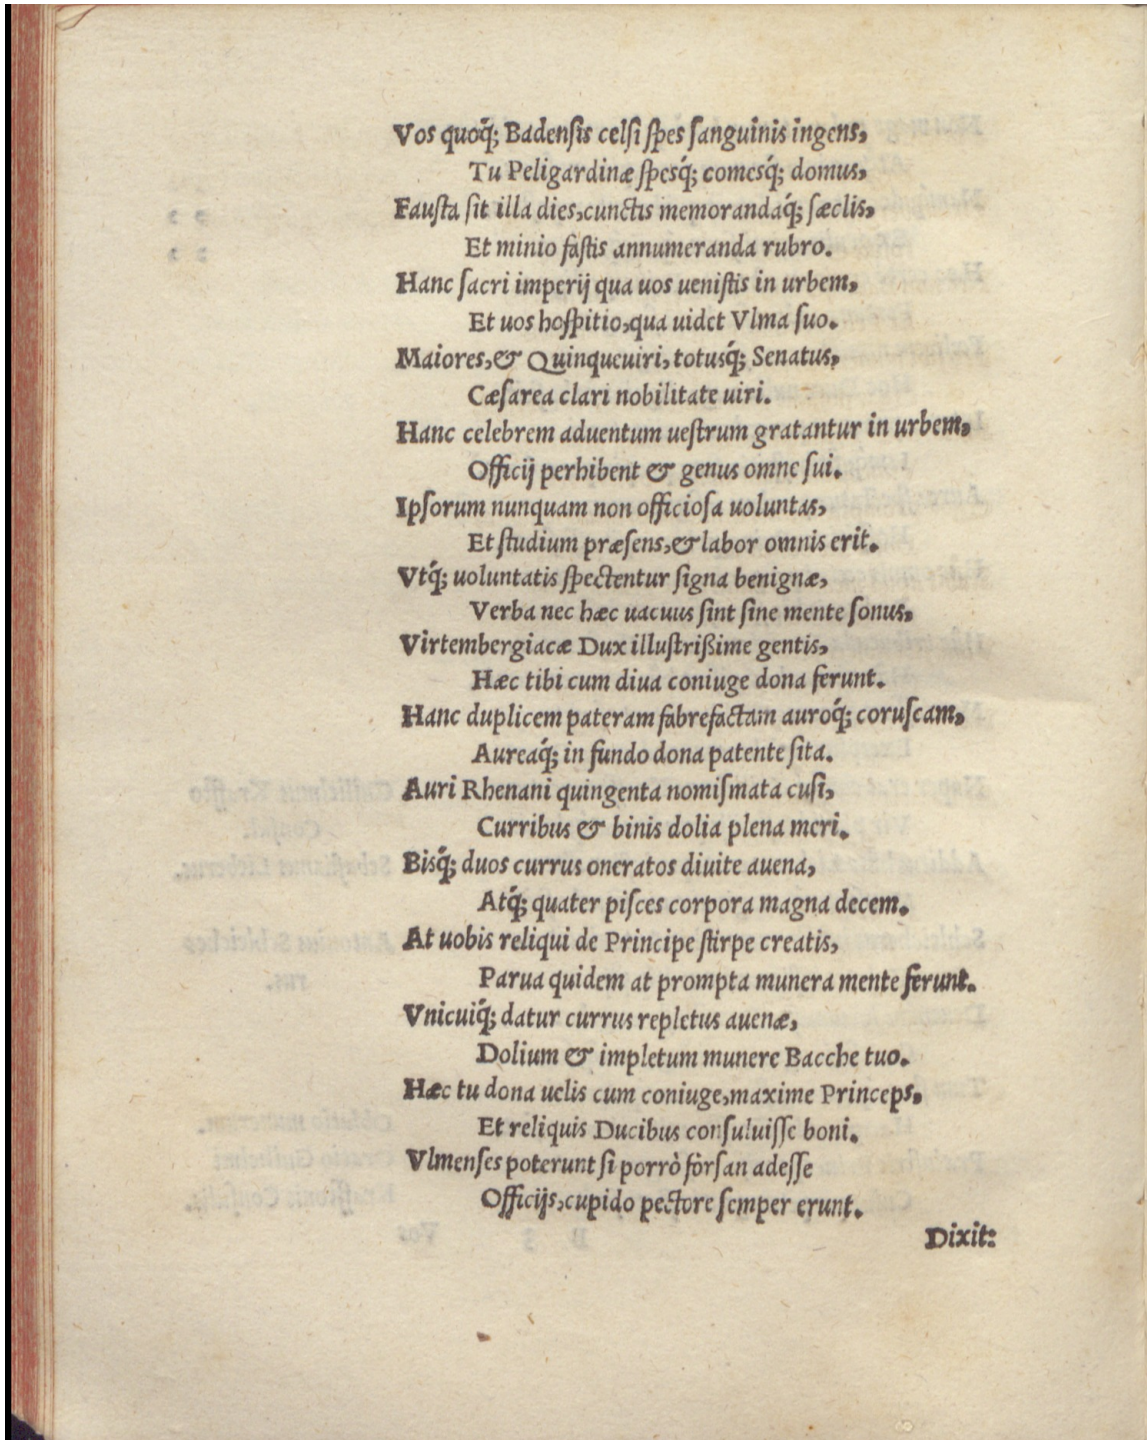 Vos quoq́; Badensis celsi spes sanguinis ingens,
Tu Peligardinæ spesq́; comesq́; domus,
Fausta sit illa dies, cunctis memorandaq́; sæclis,
Et minio fastis annumeranda rubro.
Hanc sacri imperij qua uos uenistis in urbem,
Et uos hospitio, qua uidet Vlma suo.
Maiores, & Quinqueuiri, totusq́; Senatus,
Cæsarea clari nobilitate uiri.
Hanc celebrem aduentum uestrum gratantur in urbem,
Officij perhibent & genus omne sui.
Ipsorum nunquam non officiosa uoluntas,
Et studium præsens, & labor omnis erit.
Vtq́; uoluntatis spectentur signa benignæ,
Verba nec hæc uacuus sint sine mente sonus,
Virtembergiacæ Dux illustrißime gentis,
Hæc tibi cum diua coniuge dona ferunt.
Hanc duplicem pateram fabrefactam auroq́; coruscam,
Aureaq́; in fundo dona patente sita.
Auri Rhenani quingenta nomismata cusi,
Curribus & binis dolia plena meri.
Bisq́; duos currus oneratos diuite auena,
Atq́; quater pisces corpora magna decem.
At uobis reliqui de Principe stirpe creatis,
Parua quidem at prompta munera mente ferunt.
Vnicuiq́; datur currus repletus auenæ,
Dolium & impletum munere Bacche tuo.
Hæc tu dona uelis cum coniuge, maxime Princeps,
Et reliquis Ducibus consuluisse boni.
Vlmenses poterunt si porrò fòrsan adesse
Officijs, cupido pectore semper erunt.
Dixit: